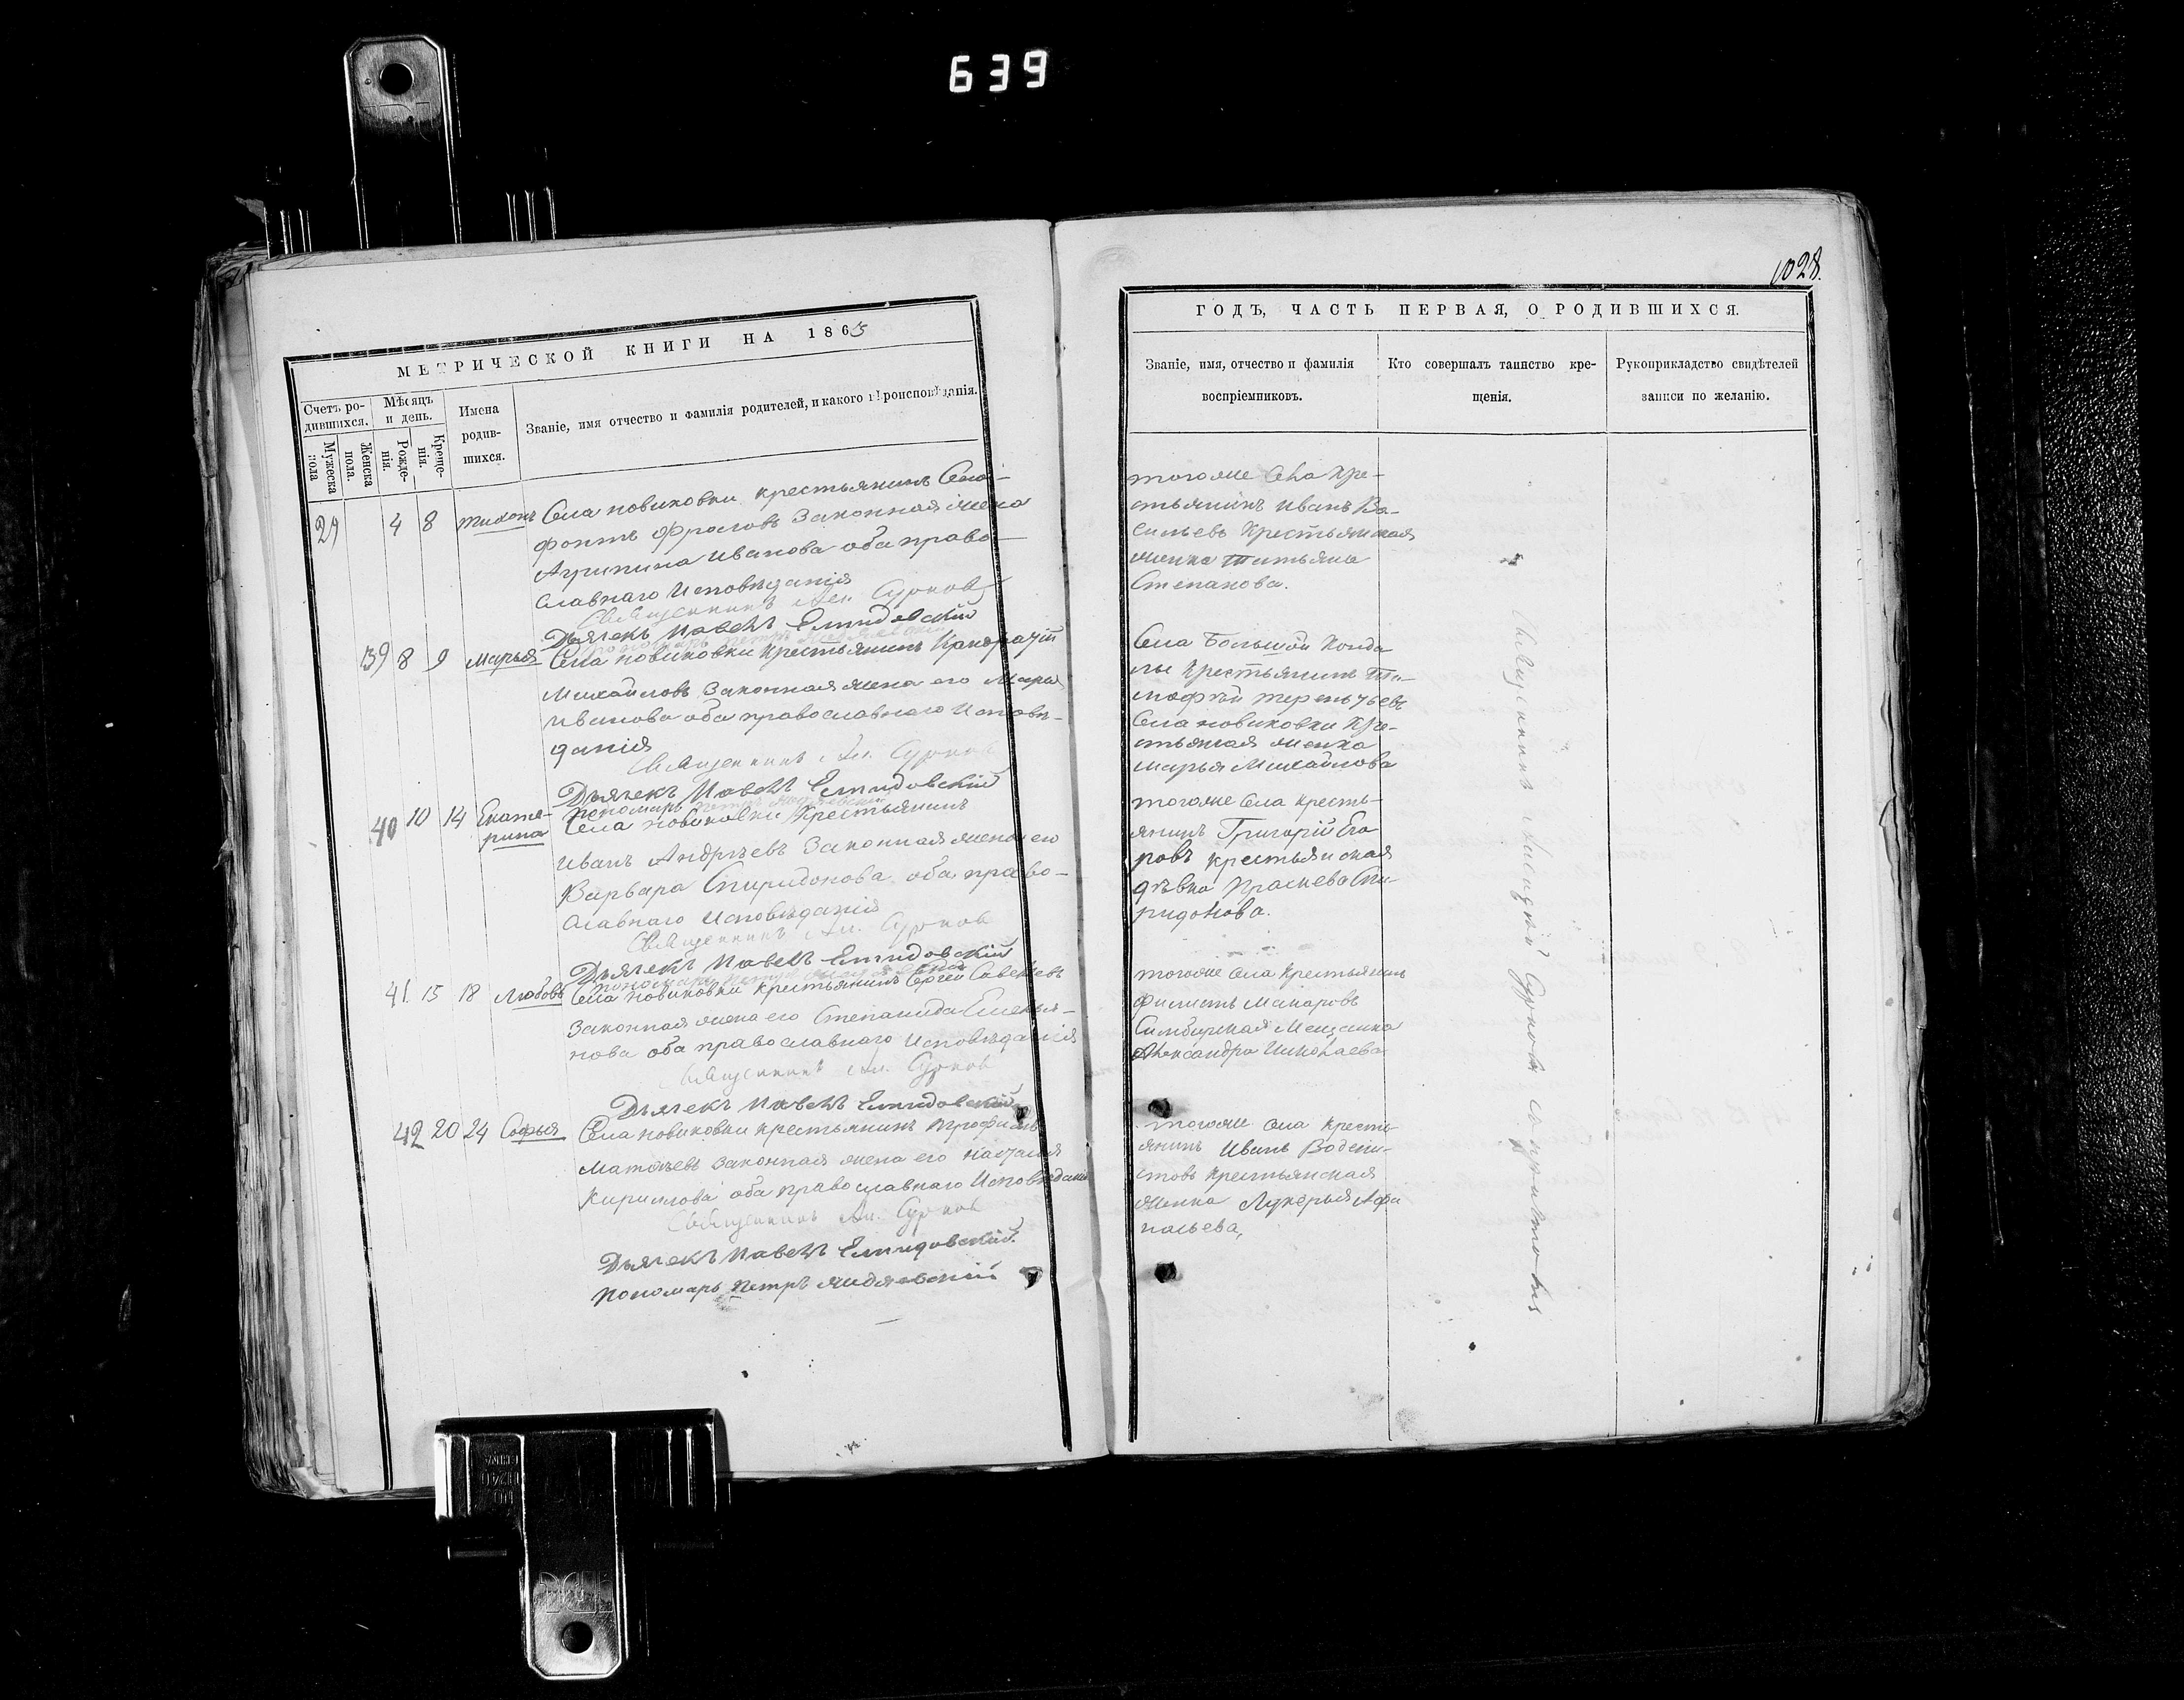 639
1028.
МЕТРИЧЕСКОЙ КНИГИ НА 1865
Счетъ ро-
дившихся.
Мужеска
пола
Женска
пола.
Мѣсяцъ
и день.
Рожде-
нія.
Креще-
нія.
Имена
родив-
шихся.
Званіе, имя отчество и фамилія родителей, и какого вѣроисповѣданія.
29 4 8 Тихонъ
Села Новиковки крестьянинъ
Фроловъ Законная жена
Агрипина Иванова оба право-
славнаго Исповѣданія
Священникъ Ал. Сурковъ
Дьячекъ Павелъ
39 8 9 Марья
Села Новиковки Крестьянинъ Кандратій
Михайловъ Законная жена его Марья
Иванова оба православнаго Исповѣ-
данія
Священникъ Ал. Сурковъ
Дьячекъ Павелъ
Пономарь Петръ
40 10 14 Екате-
рина
Села Новиковки Крестьянинъ
Иванъ Андрѣевъ Законная жена его
Варвара Спиридонова оба право-
славнаго Исповѣданія
Священникъ Ал. Сурковъ
Дьячекъ Павелъ
Пономарь Петръ
41. 15 18 Любовь
Села Новиковки крестьянинъ Сергей Савельевъ
Законная жена его Степанида Емелья-
нова оба православнаго Исповѣданія
Священникъ Ал. Сурковъ
Дьячекъ Павелъ
42 20 24 Софья
Села Новиковки крестьянинъ Трофимъ
Матвѣевъ Законная жена его Наталья
Кирилова оба православнаго Исповѣданія
Священникъ Ал. Сурковъ
Дьячекъ Павелъ
Пономарь Петръ
ГОДЪ, ЧАСТЬ ПЕРВАЯ, О РОДИВШИХСЯ.
Званіе, имя, отчество и фамилія
воспріемниковъ.
Кто совершалъ таинство кре-
щенія.
Рукоприкладство свидѣтелей
записи по желанію.
тогоже села кре-
стьянинъ Иванъ Ва-
сильевъ Крестьянская
женка Татьяна
Степанова.
Села Большой Конда
лы Крестьянинъ Ти-
мофѣй Терентьевъ
Села Новиковки Кре-
стьянская женка
Марья Михайлова
тогоже Села кресть-
янинъ Григорій Его
ровъ крестьянская
дѣвка Прасковья Спи-
ридонова.
тогоже Села Крестьянинъ
Филипъ Макаровъ
Симбирская Мещанка
Александра Николаева
тогоже села кресть-
янинъ Иванъ
крестьянская
женка Лукерья Афа
насьева,
Священникъ Сурковъ съ причтомъ